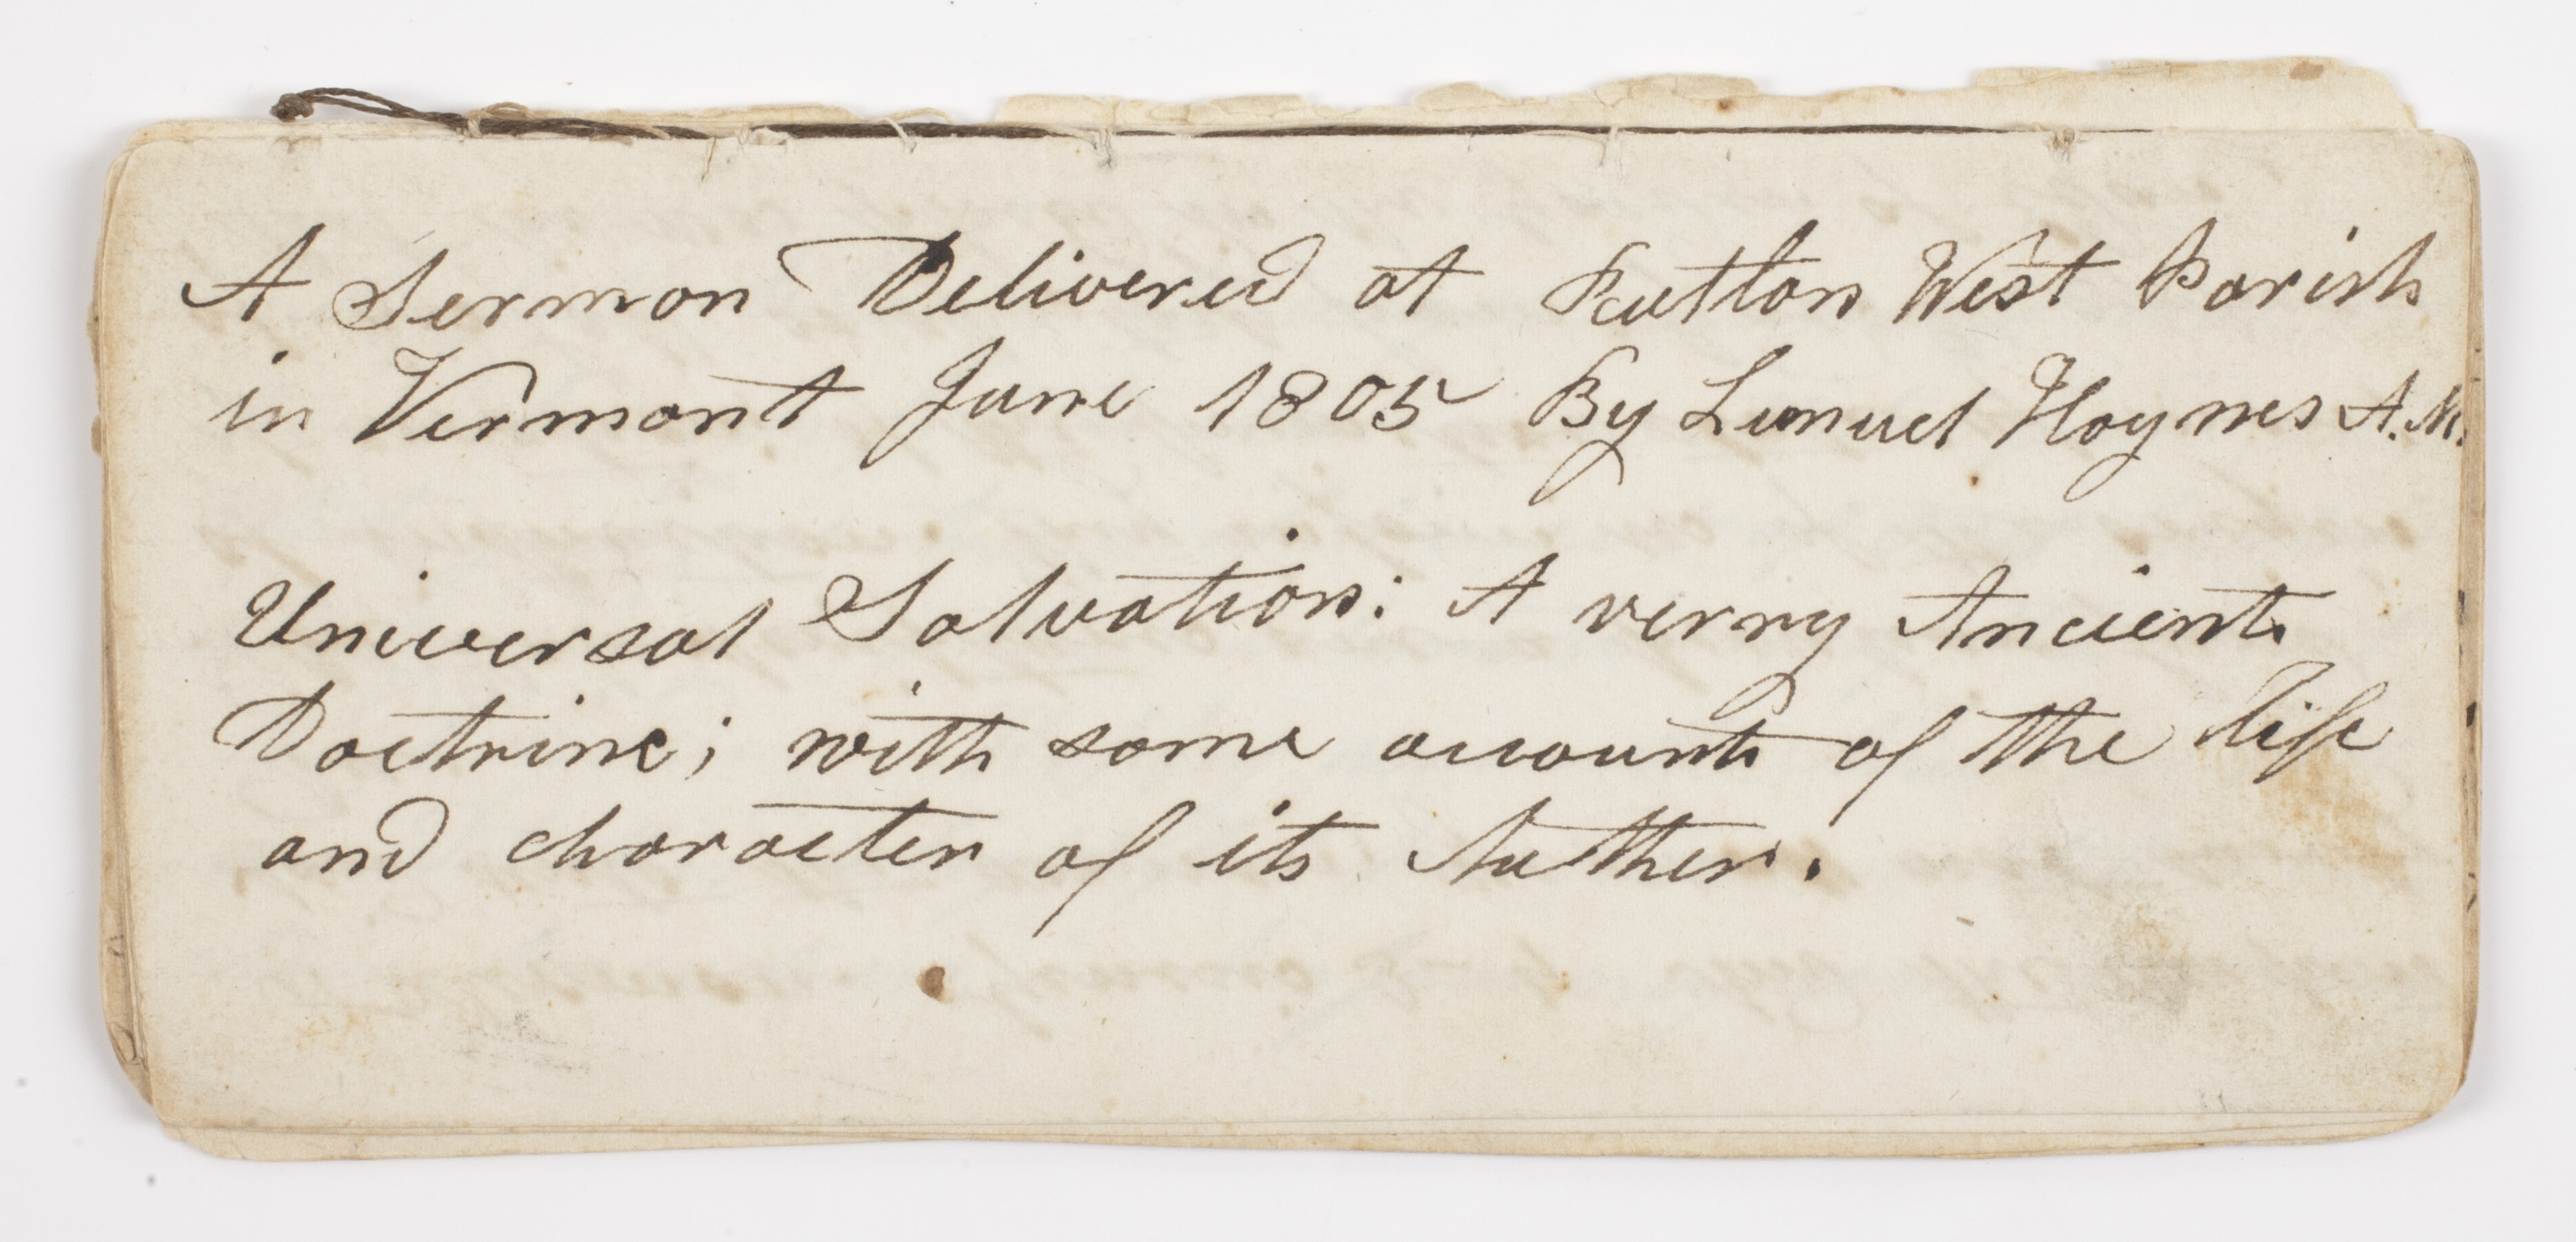 A Sermon Delivered at Rutlon West Parish
in Vermont June 1805 By Lemuel Haynes A.M.
Universal Salvation: A verry Ancient
Doctrine; with some account of the life
and character of its Auther.